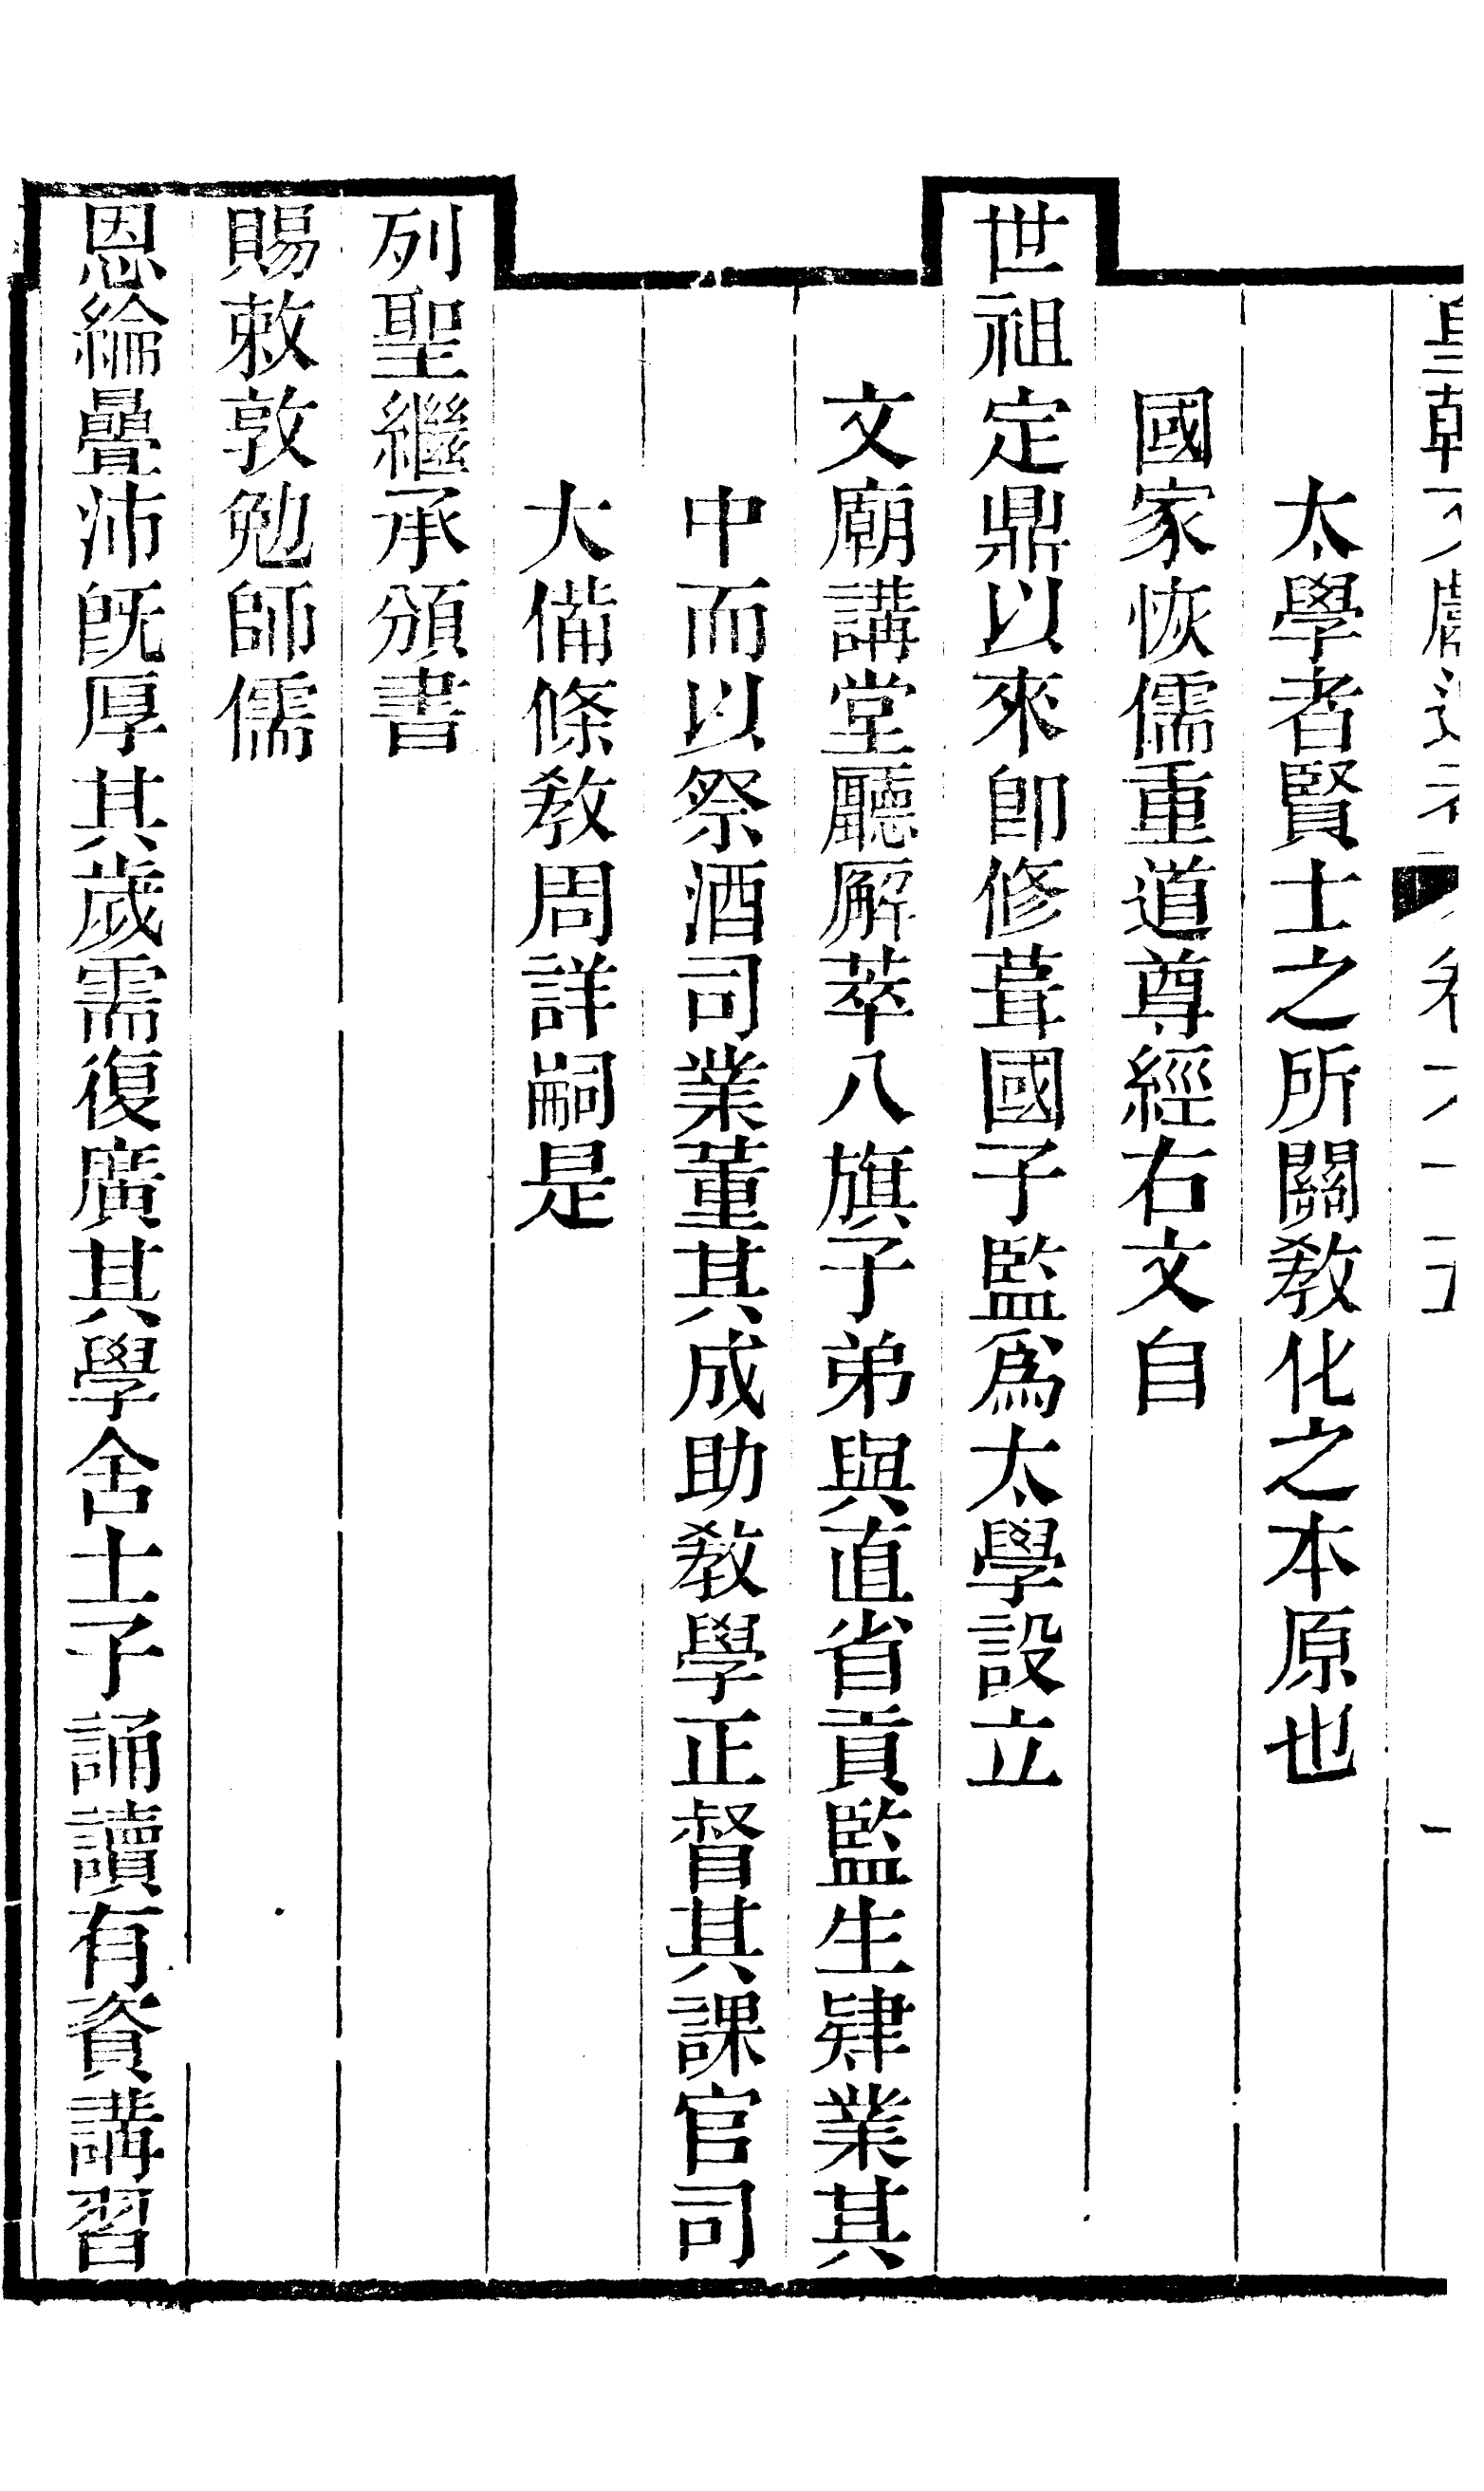 太學者賢士之所關教化之本原也
國家恢儒重道尊經右文自
世祖定鼎以來卽修葺國子監爲太學設立
文廟講堂廳廨萃八旗子弟與直省貢監生肄業其
中而以祭酒司業董其成助教學正督其課官司
大備條教周詳嗣是
列聖繼承頒書
賜敕敦勉師儒
恩綸疊沛旣厚其歲需復廣其學舍士子誦讀有資講習